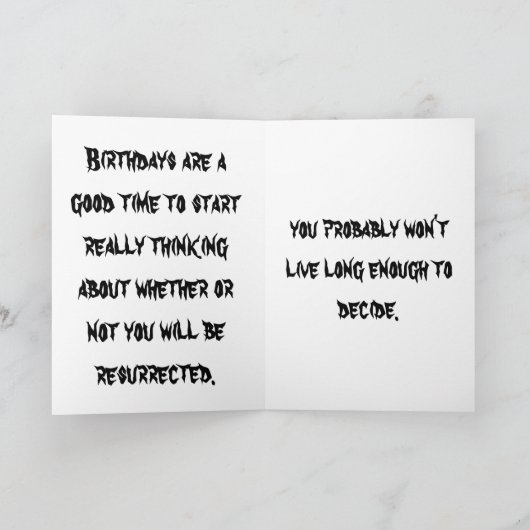 Birthdays are a
good time to start
really thinking
about whether or
not you will be
resurrected.
you probably won't
live long enough to
decide.